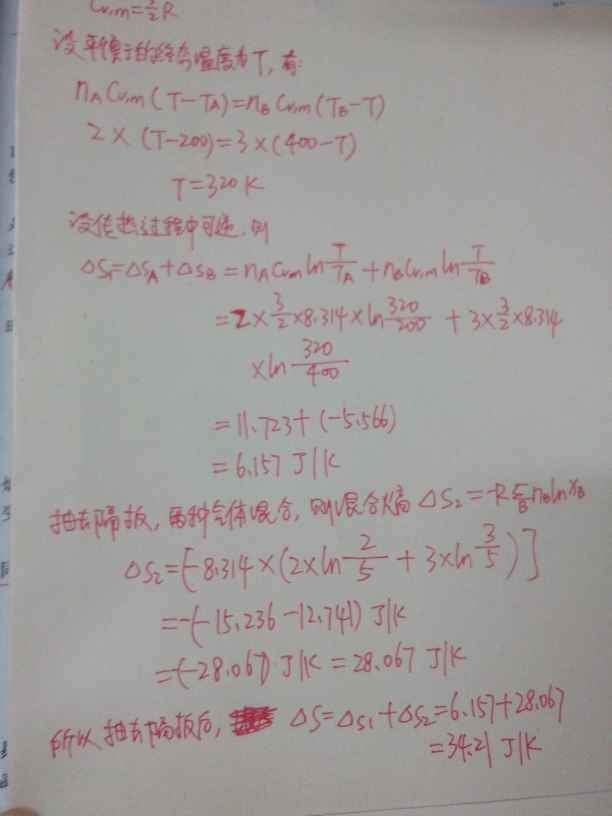 Cv,m=3/2 R
设平衡时的终态温度为T, 有:
nA Cv,m(T-TA)=nB Cv,m(TB-T)
2×(T-200)=3×(400-T)
T=320K
设传热过程中可逆, 则
ΔS1=ΔSA+ΔSB=nA Cv,m ln T/TA + nB Cv,m ln T/TB
=2×3/2×8.314×ln 320/200 + 3×3/2×8.314
×ln 320/400
=11.723+(-5.566)
=6.157 J/K
抽去隔板, 两种气体混合, 则混合熵 ΔS2=-RΣB nB ln xB
ΔS2=[-8.314×(2×ln 2/5 + 3×ln 3/5)]
=-(-15.236-12.741) J/K
=-(-28.067) J/K=28.067 J/K
所以抽去隔板后, ΔS=ΔS1+ΔS2=6.157+28.067
=34.21 J/K